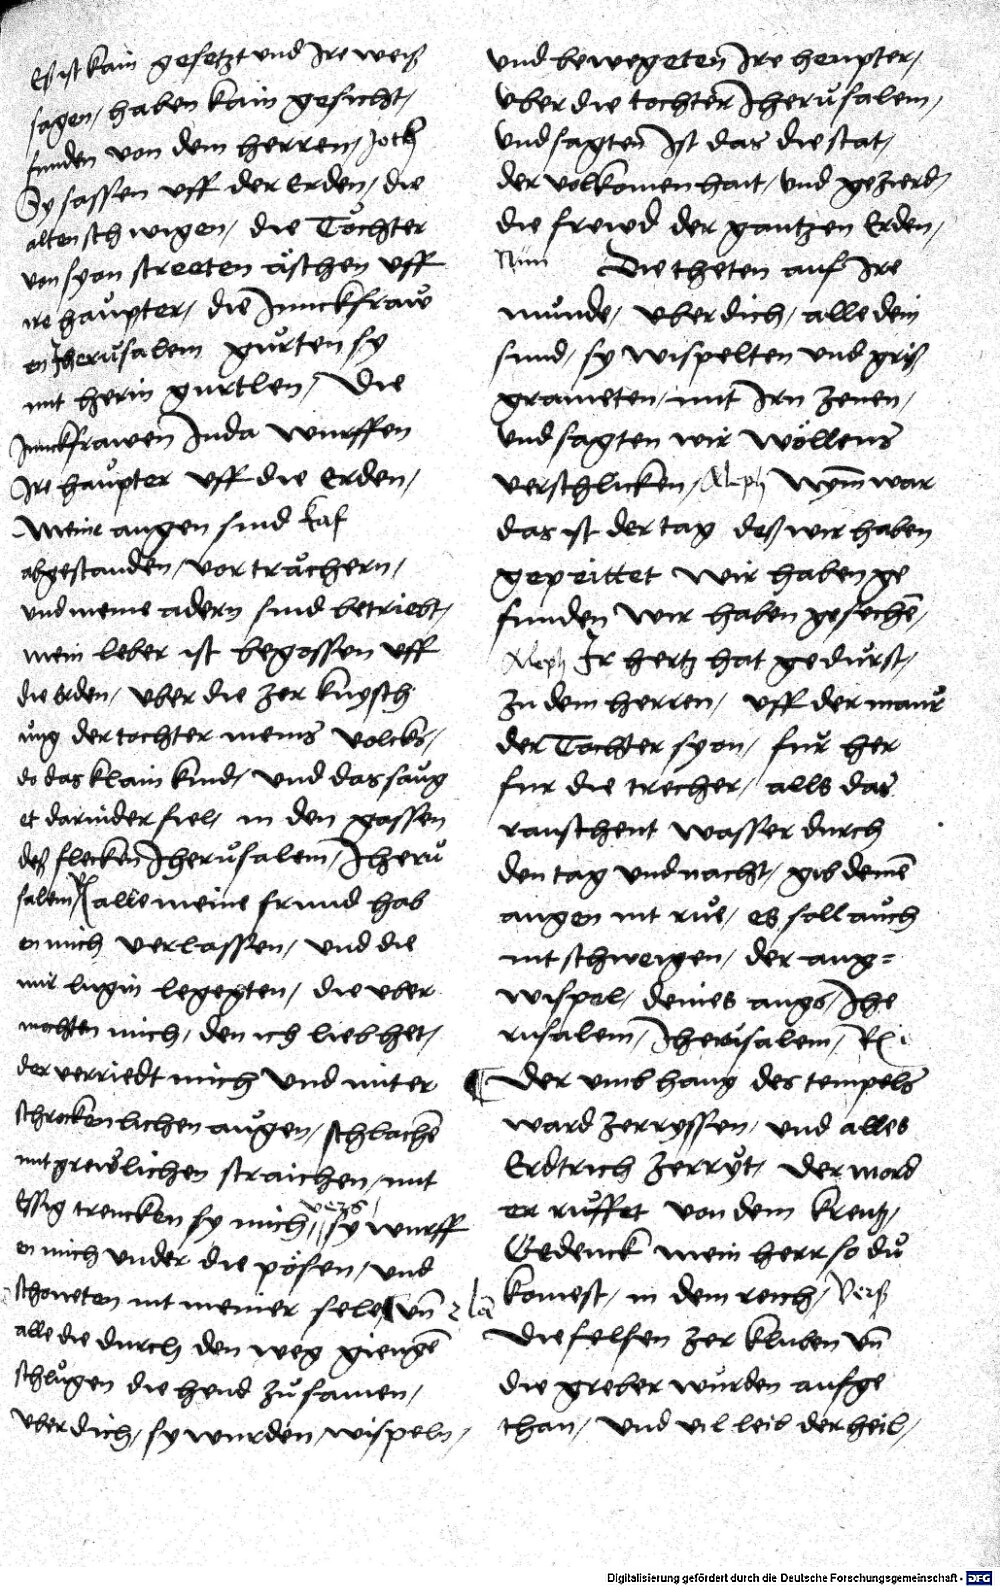 Eß ist kain gesetzt und Ire weiß
sagen, haben kain gesicht,
funden von dem herren, Joth
Sy sassen uff der Erden, die
alten schwigen, die Töchter
von syon streeten äschen uff
ire haůpter, die Junckfraw
en Jherůsalem gůrten sy
mit herin gurtlen, Die
Junckfrawen Juda wurffen
Ire haůpter uff die Erden,
Meine augen sind kaf
abgestanden, vor trächern,
und meine adern sind betriebt,
mein leber ist begossen uff
die erden, uber die zer knysch
ůng der tochter meins volcks,
do das klain kind, und das saůg
et darinder fiel, in den gassen
deß flecken Jherůsalem, Jherů
salem, R alle meine frund hab
en mich verlassen, und die
mir lugin legegten, die uber
mochten mich, den ich lieb het,
der verriedt mich und miter
schrockenlichen aůgen, schlachē
mit grewlichen straichen, mit
Essig trencken sy mich, vers sy wurff
en mich under die pösen, und
schoneten nit meiner sele, uñ
alle die durch den weg giengē
schlůgen die hend zůsamen,
uber dich, sy wurden, wispeln,
und bewegeten Ire heupter,
uber die tochter Jherůsalem,
und sagten Ist das die stat,
der volkomenhait, und gezierd,
die frewd der gantzen Erden,
Die theten auf Ire
můnde, uber dich, alle dein
find, sy wispelten und griß
grameten, mit Irn zenen,
und sagten wir wöllens
verschlicken, Aleph Nym war
das ist der tag deß wir haben
gepeittet wir haben ge
funden wir haben gesechē,
Aleph Ir hertz hat gedůrst,
zu dem herren, uff der maur
der Tochter syon, fůr her
fur die trecher, alls das
rauschent wasser durch
den tag und nacht, gib deinē
augen nit růe, es soll aůch
nit schweigen, der aug=
wispel, deines augs, Jhe
rusalem, Jherusalem, R
Der umbhang des tempels
ward zerryssen, und alles
Erdtrich zerrůt, der mord
er růffet von dem kreutz,
Gedenck mein herr so dů
komest, in dem reich, Verß
Die felsen zer kluben uñ
die greber wůrden aufge
than, und vil leib der heil,
Digitalisierung gefördert durch die Deutsche Forschungsgemeinschaft - DFG